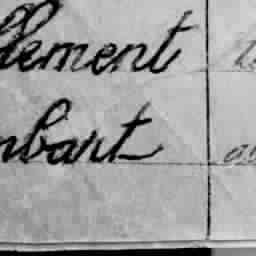 llement
mbart